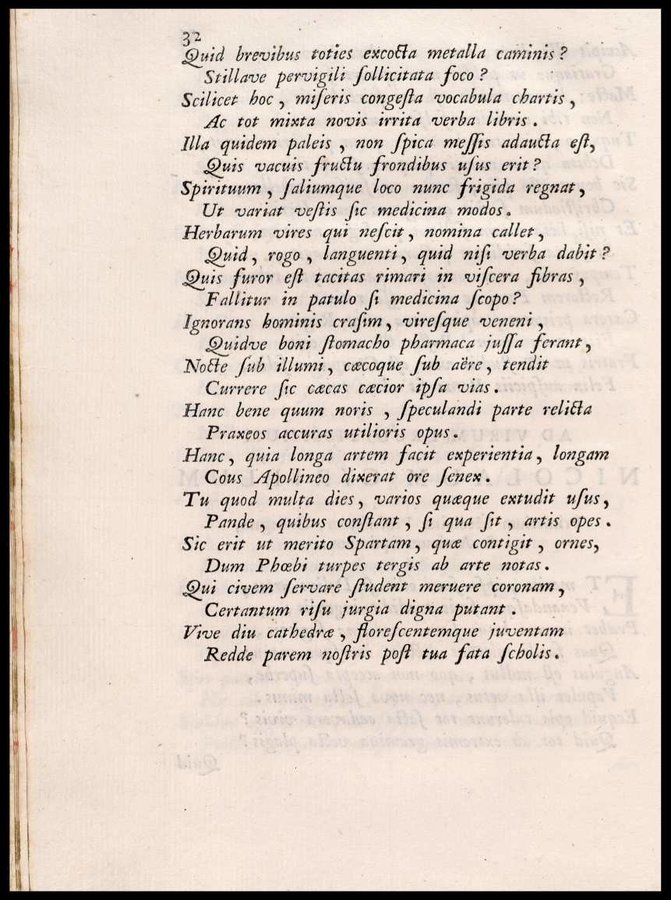 32
Quid brevibus toties excocta metalla caminis ?
Stillave pervigili ſollicitata foco ?
Scilicet hoc , miſeris congeſta vocabula chartis ,
Ac tot mixta novis irrita verba libris .
Illa quidem paleis , non ſpica meſſis adaucta eſt,
Quis vacuis fructu frondibus uſus erit ?
Spirituum , ſaliumque loco nunc frigida regnat ,
Ut variat veſtis ſic medicina modos .
Herbarum vires qui neſcit , nomina callet ,
Quid , rogo , languenti , quid niſi verba dabit ?
Quis furor eſt tacitas rimari in viſcera fibras ,
Fallitur in patulo ſi medicina ſcopo ?
Ignorans hominis craſim , vireſque veneni ,
Quidve boni ſtomacho pharmaca juſſa ferant ,
Nocte ſub illumi , cæcoque ſub aëre , tendit
Currere ſic cæcas cæcior ipſa vias .
Hanc bene quum noris , ſpeculandi parte relicta
Praxeos accuras utilioris opus .
Hanc , quia longa artem facit experientia , longam
Cous Apollineo dixerat ore ſenex .
Tu quod multa dies , varios quæque extudit uſus ,
Pande , quibus conſtant , ſi qua ſit , artis opes .
Sic erit ut merito Spartam , quæ contigit , ornes,
Dum Phœbi turpes tergis ab arte notas .
Qui civem ſervare ſtudent meruere coronam ,
Certantum riſu jurgia digna putant .
Vive diu cathedræ , floreſcentemque juventam
Redde parem noſtris poſt tua fata ſcholis .